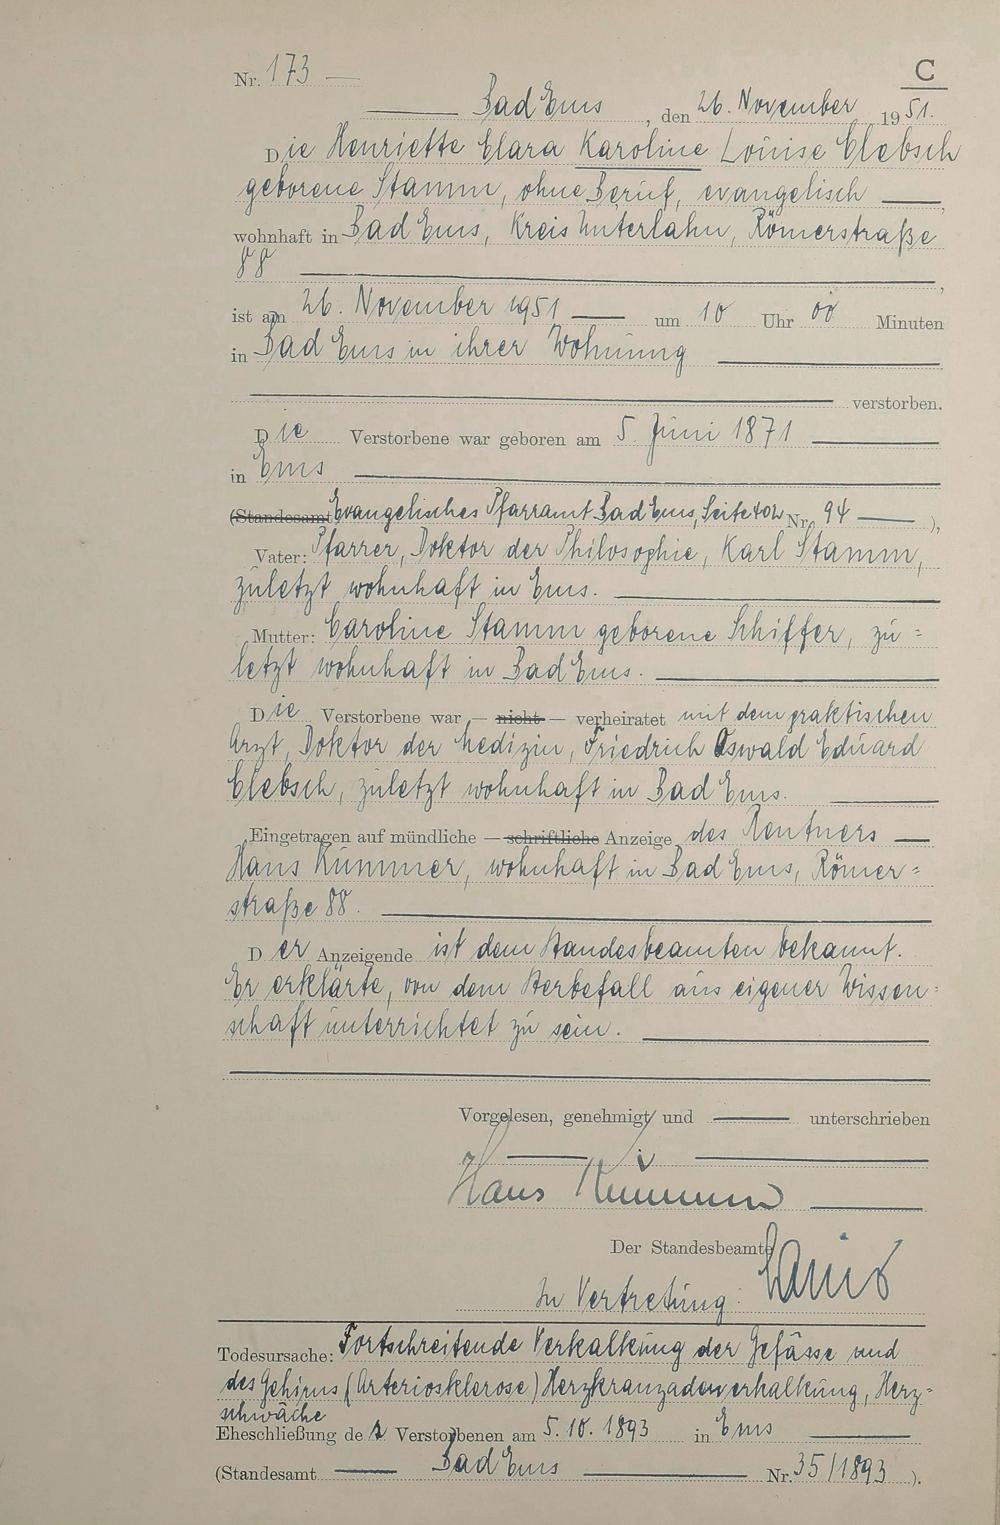 Nr. 173 —
C
Bad Ems, den 26. November 1951.
Die Henriette Clara Karoline Louise Clebsch
geborene Stamm, ohne Beruf, evangelisch —,
wohnhaft in Bad Ems, Kreis Unterlahn, Römerstraße
88 —,
ist am 26. November 1951 — um 10 Uhr 00 Minuten
in Bad Ems in ihrer Wohnung —
— verstorben.
Die Verstorbene war geboren am 5. Juni 1871 —
in Ems —
(Standesamt Evangelisches Pfarramt Bad Ems, Seite 402 Nr. 94 — ),
Vater: Pfarrer, Doktor der Philosophie, Karl Stamm,
zuletzt wohnhaft in Ems. —
Mutter: Caroline Stamm geborene Schiffer, zu=
letzt wohnhaft in Bad Ems. —
Die Verstorbene war — nicht — verheiratet mit dem praktischen
Arzt, Doktor der Medizin, Friedrich Oswald Eduard
Clebsch, zuletzt wohnhaft in Bad Ems. —
Eingetragen auf mündliche — schriftliche Anzeige des Rentners —
Hans Kummer, wohnhaft in Bad Ems, Römer=
straße 88. —
Der Anzeigende ist dem Standesbeamten bekannt.
Er erklärte, von dem Sterbefall aus eigener Wissen=
schaft unterrichtet zu sein. —
Vorgelesen, genehmigt und — unterschrieben
Hans Kummer —
Der Standesbeamte
In Vertretung:
Todesursache: Fortschreitende Verkalkung der Gefässe und
des Gehirns (Arteriosklerose) Herzkranzadernverkalkung, Herz=
schwäche
Eheschließung der Verstorbenen am 5.10.1893 in Ems —
(Standesamt — Bad Ems — Nr. 35/1893 ).